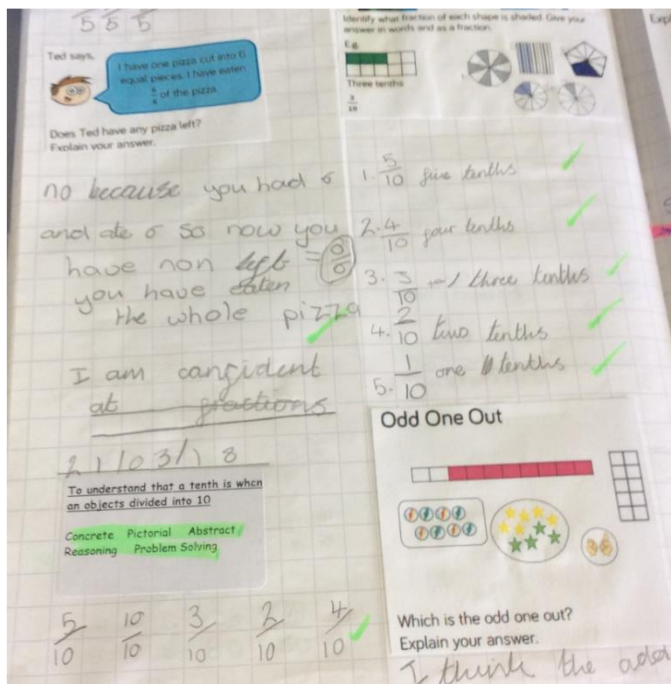 5 5 5
Ted says,
I have one pizza cut into 6
equal pieces. I have eaten
6/6 of the pizza.
Does Ted have any pizza left?
Explain your answer.
no because you had 6
and ate 6 so now you
have non left = 6/6
you have eaten
the whole pizza
I am confident
at fractions
21/03/18
To understand that a tenth is when
an objects divided into 10
Concrete Pictorial Abstract
Reasoning Problem Solving
5/10 10/10 3/10 2/10 4/10
Identify what fraction of each shape is shaded. Give your
answer in words and as a fraction.
E.g.
Three tenths
3/10
1. 5/10 five tenths
2. 4/10 four tenths
3. 3/10 three tenths
4. 2/10 two tenths
5. 1/10 one tenths
Odd One Out
Which is the odd one out?
Explain your answer.
I think the odd
Expl